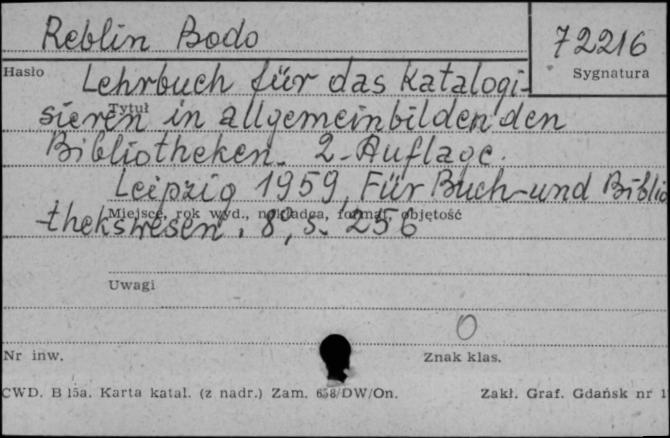 Reblin Bodo
72216
Hasło
Sygnatura
Lehrbuch für das Katalogi-
Tytuł
sieren in allgemeinbildenden
Bibliotheken. 2-Auflage.
Leipzig 1959, Für Buch-und Biblio
Miejsce, rok wyd., nakładca, format, objętość
-thekswesen. 8, s. 256
Uwagi
O
Nr inw.
Znak klas.
CWD. B 15a. Karta katal. (z nadr.) Zam. 658/DW/On.
Zakł. Graf. Gdańsk nr 1